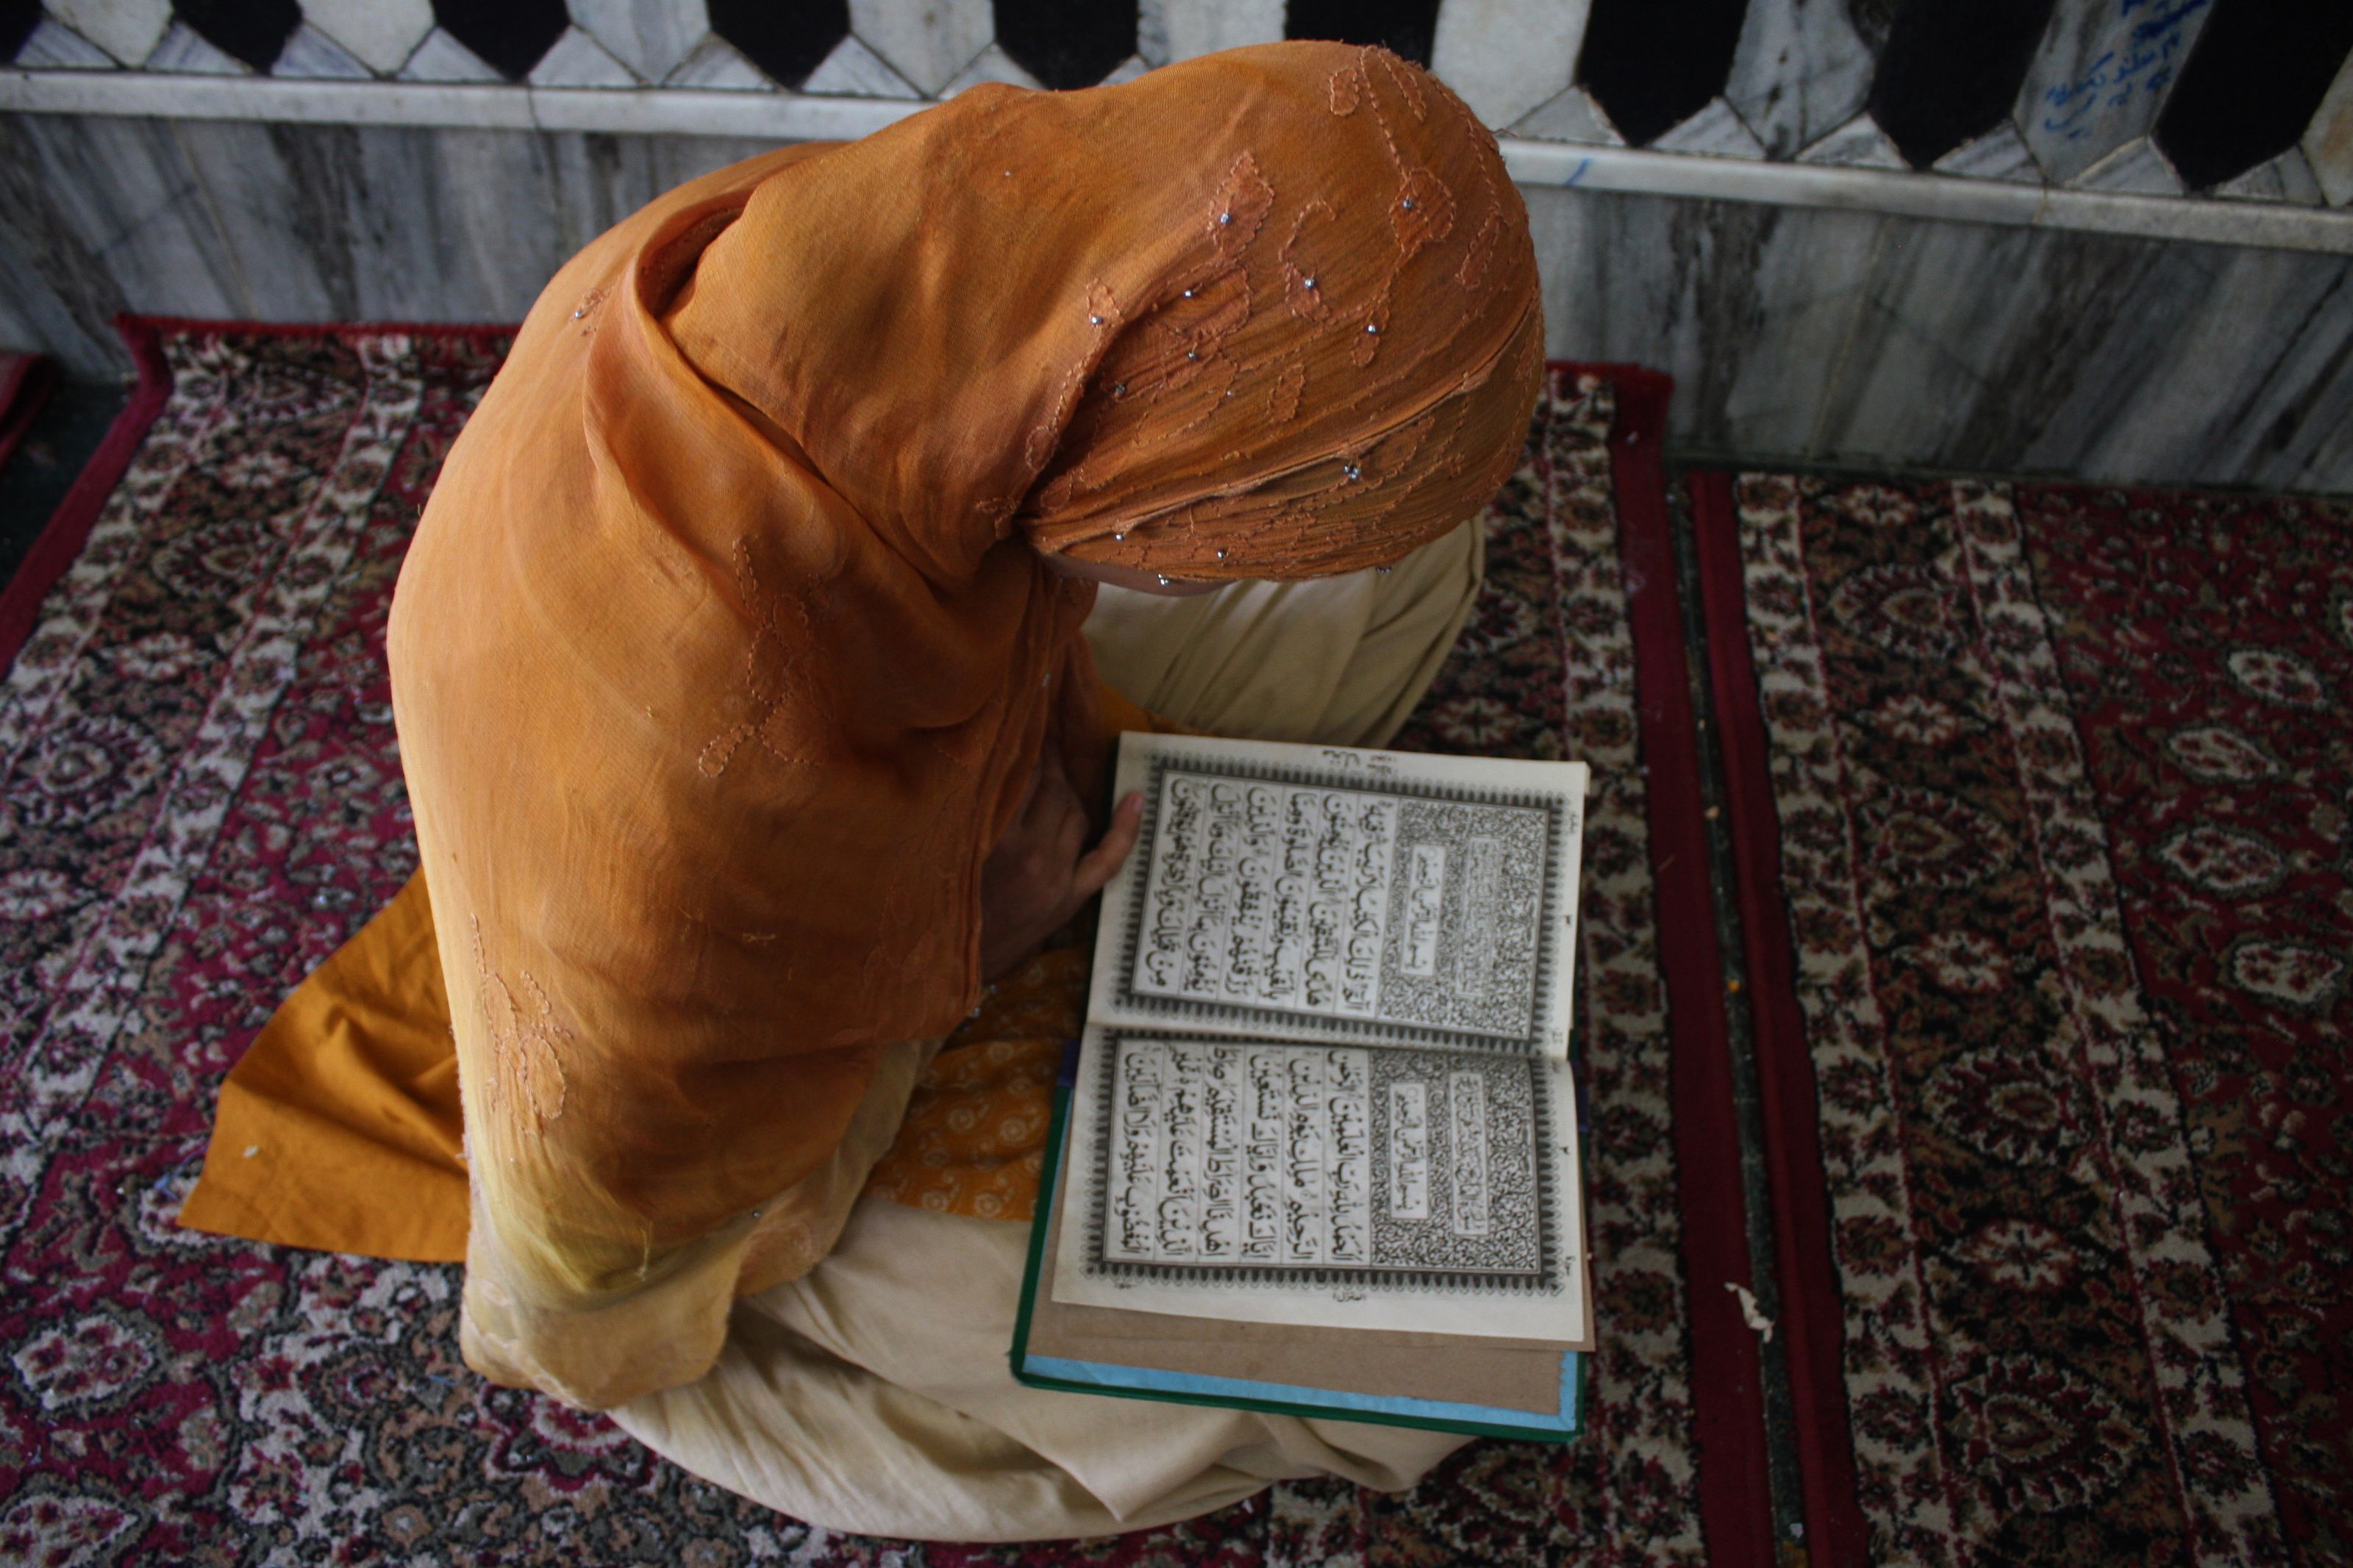 بِسْمِ اللهِ الرَّحْمٰنِ الرَّحِيْمِ
اَلْحَمْدُ لِلّٰهِ رَبِّ الْعٰلَمِيْنَ الرَّحْمٰنِ
الرَّحِيْمِ مٰلِكِ يَوْمِ الدِّيْنِ
اِيَّاكَ نَعْبُدُ وَاِيَّاكَ نَسْتَعِيْنُ
اِهْدِنَا الصِّرَاطَ الْمُسْتَقِيْمَ صِرَاطَ
الَّذِيْنَ اَنْعَمْتَ عَلَيْهِمْ غَيْرِ
الْمَغْضُوْبِ عَلَيْهِمْ وَلَا الضَّآلِّيْنَ
بِسْمِ اللهِ الرَّحْمٰنِ الرَّحِيْمِ
الٓمّٓ ذٰلِكَ الْكِتٰبُ لَا رَيْبَ فِيْهِ
هُدًى لِّلْمُتَّقِيْنَ الَّذِيْنَ يُؤْمِنُوْنَ
بِالْغَيْبِ وَيُقِيْمُوْنَ الصَّلٰوةَ وَمِمَّا
رَزَقْنٰهُمْ يُنْفِقُوْنَ وَالَّذِيْنَ
يُؤْمِنُوْنَ بِمَآ اُنْزِلَ اِلَيْكَ وَمَآ اُنْزِلَ
مِنْ قَبْلِكَ وَبِالْاٰخِرَةِ هُمْ يُوْقِنُوْنَ